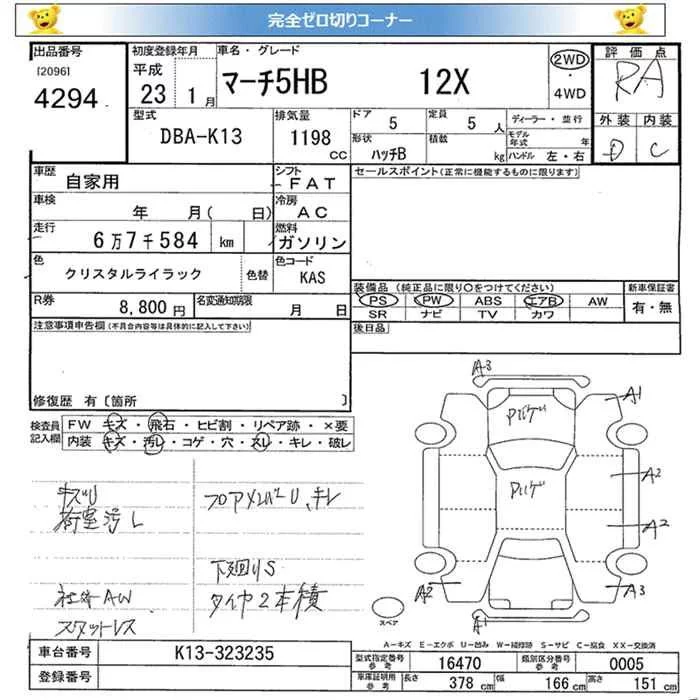 完全ゼロ切りコーナー
出品番号
[2096]
4294
初度登録年月
平成
23 1月
車名・グレード
マーチ5HB 12X
2WD
・
4WD
評価点
RA
外装 内装
D C
型式
DBA-K13
排気量
1198 CC
ドア 5
定員 5 人
ディーラー・並行
形状 ハッチB
積載 kg
モデル年式 年
ハンドル 左・右
車歴 自家用
シフト
FAT
セールスポイント(正常に機能するものに限ります)
車検 年 月( 日)
冷房
AC
走行 6万7千584 km
燃料
ガソリン
色 クリスタルライラック
色替
色コード
KAS
装備品 (純正品に限り○をつけてください)
新車保証書
PS PW ABS エアB AW
有・無
SR ナビ TV カワ
R券 8,800円
名変通知期限 月 日
後日品
注意事項申告欄(不具合内容等は具体的に記入して下さい)
修復歴 有〔箇所 〕
検査員記入欄
FW キズ・飛石・ヒビ割・リペア跡・×要
内装 キズ・汚レ・コゲ・穴・スレ・キレ・破レ
キズU
荷室汚レ
フロアメンバーU、キレ
下廻りS
社外AW
タイヤ2本積
スタットレス
A3
A1
A2
A2
A2
A3
A1
スペア
A-キズ E-エクボ U-凹み W-補修跡 S-サビ C-腐食 XX-交換済
車台番号 K13-323235
型式指定番号 参考 16470
類別区分番号 参考 0005
登録番号
車庫証明用 参考
長さ 378 cm
幅 166 cm
高さ 151 cm